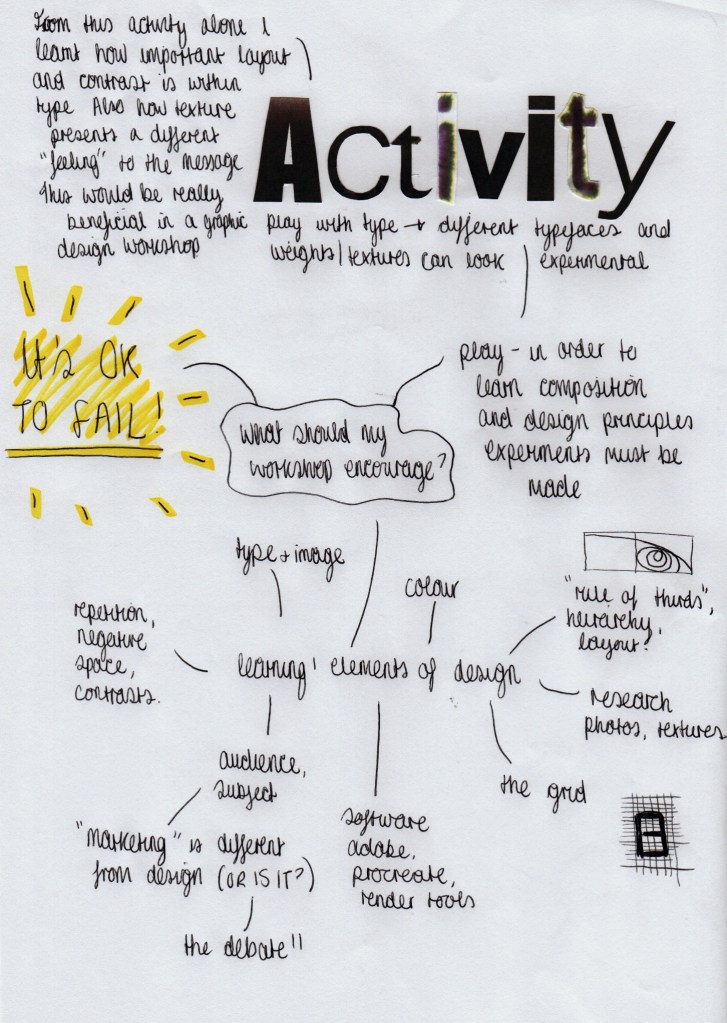 From this activity alone I
learnt how important layout
and contrast is within
type Also how texture
presents a different
"feeling" to the message
This would be really
beneficial in a graphic
design workshop
Activity
play with type → different typefaces and
weights/textures can look experimental
It's OK
TO FAIL!
What should my
workshop encourage?
play - in order to
learn composition
and design principles
experiments must be
made
type + image
colour
"rule of thirds",
hierarchy,
layout?
repetition,
negative
space,
contrasts.
learning' elements of design
research
photos, textures
audience,
subject
the grid
"marketing" is different
from design (OR IS IT?)
the debate!!
software
adobe,
procreate,
render tools